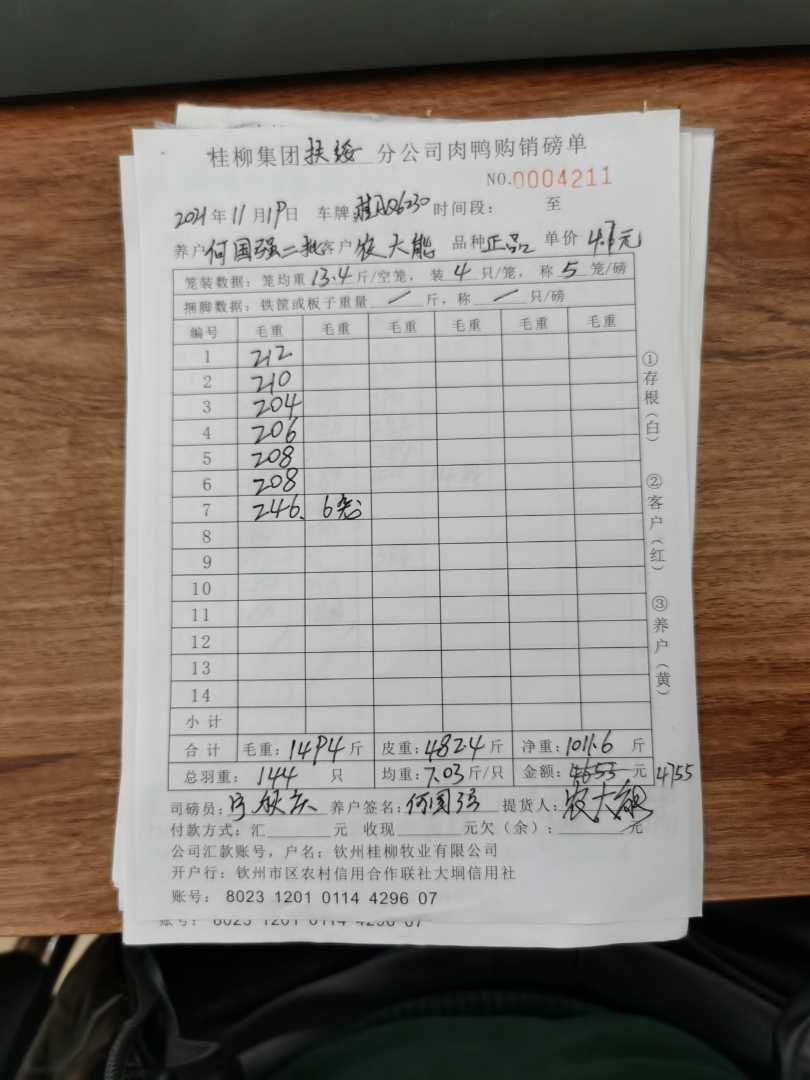 桂柳集团扶绥分公司肉鸭购销磅单
NO.0004211
2021年11月19日 车牌桂A06230 时间段: 至
养户何国强二批客户农大能 品种正品 单价4.7元
笼装数据：笼均重13.4斤/空笼，装4只/笼，称5笼/磅
捆脚数据：铁筐或板子重量/斤，称/只/磅
编号 毛重 毛重 毛重 毛重 毛重 毛重
1 212
2 210
3 204
4 206
5 208
6 208
7 246. 6笼
8
9
10
11
12
13
14
小计
合计 毛重：1494斤 皮重：482.4斤 净重：1011.6斤
总羽重：144只 均重：7.03斤/只 金额：4655元 4755
司磅员： 养户签名：何国强 提货人：农大能
付款方式：汇 元 收现 元欠（余）： 元
公司汇款账号，户名：钦州桂柳牧业有限公司
开户行：钦州市区农村信用合作联社大垌信用社
账号： 8023 1201 0114 4296 07
账号： 8023 1201 0114 4296 07
①存根（白）
②客户（红）
③养户（黄）